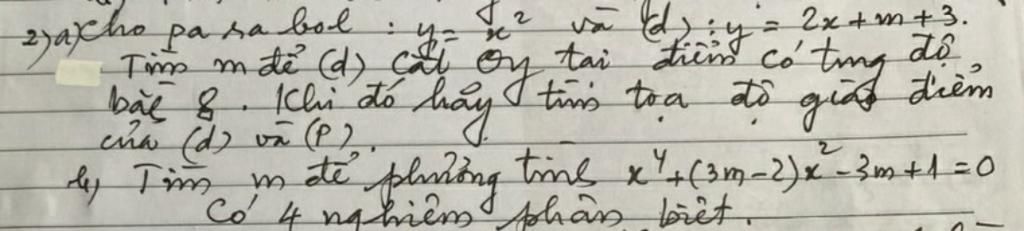 2) a) Cho parabol : y = x² và (d) : y = 2x + m + 3.
Tìm m để (d) cắt Oy tại điểm có tung độ
bằng 8. Khi đó hãy tìm tọa độ giao điểm
của (d) và (P).
b) Tìm m để phương trình x⁴ + (3m - 2)x² - 3m + 1 = 0
Có 4 nghiệm phân biệt.